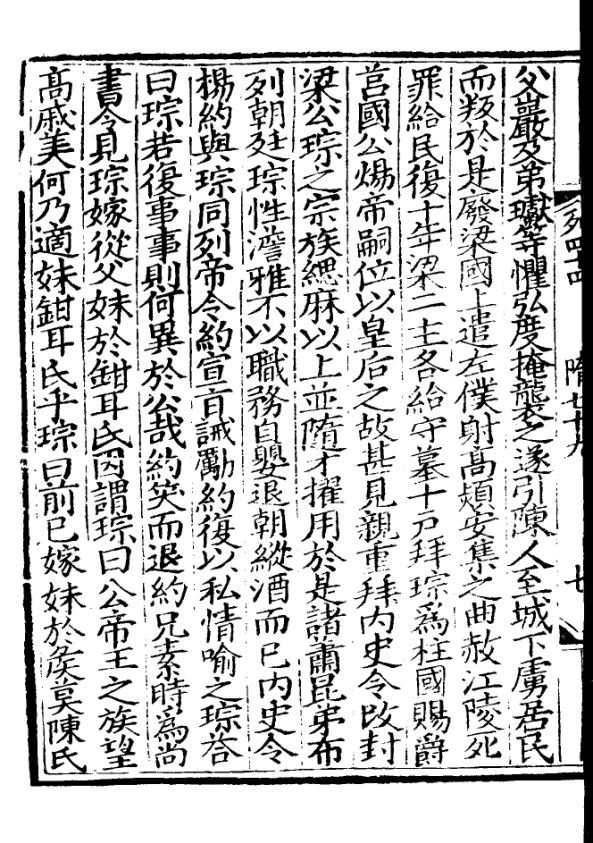 列四十四 隋七十九 七
父巖及弟瓛等懼弘度掩襲之遂引陳人至城下虜居民
而叛於是廢梁國上遣左僕射高熲安集之曲赦江陵死
罪給民復十年梁二主各給守墓十戶拜琮爲柱國賜爵
莒國公煬帝嗣位以皇后之故甚見親重拜内史令改封
梁公琮之宗族緦麻以上並隨才擢用於是諸蕭昆弟布
列朝廷琮性澹雅不以職務自嬰退朝縱酒而已内史令
楊約與琮同列帝令約宣旨誡勵約復以私情喻之琮荅
曰琮若復事事則何異於公哉約笑而退約兄素時爲尚
書令見琮嫁從父妹於鉗耳氏因謂琮曰公帝王之族望
高戚美何乃適妹鉗耳氏乎琮曰前已嫁妹於侯莫陳氏